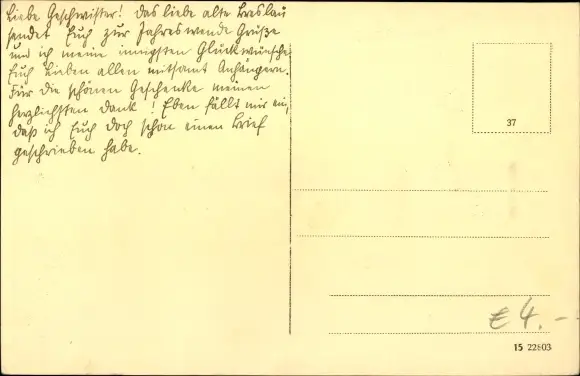 Liebe Geschwister! Das liebe alte Breslau
sendet Euch zur Jahreswende Grüße
und ich meine innigsten Glückwünsche
Euch Lieben allen mitsamt Anhängern.
Für die schönen Geschenke meinen
herzlichsten Dank! Eben fällt mir ein,
daß ich Euch doch schon einen Brief
geschrieben habe.
37
€ 4.-
15 22803